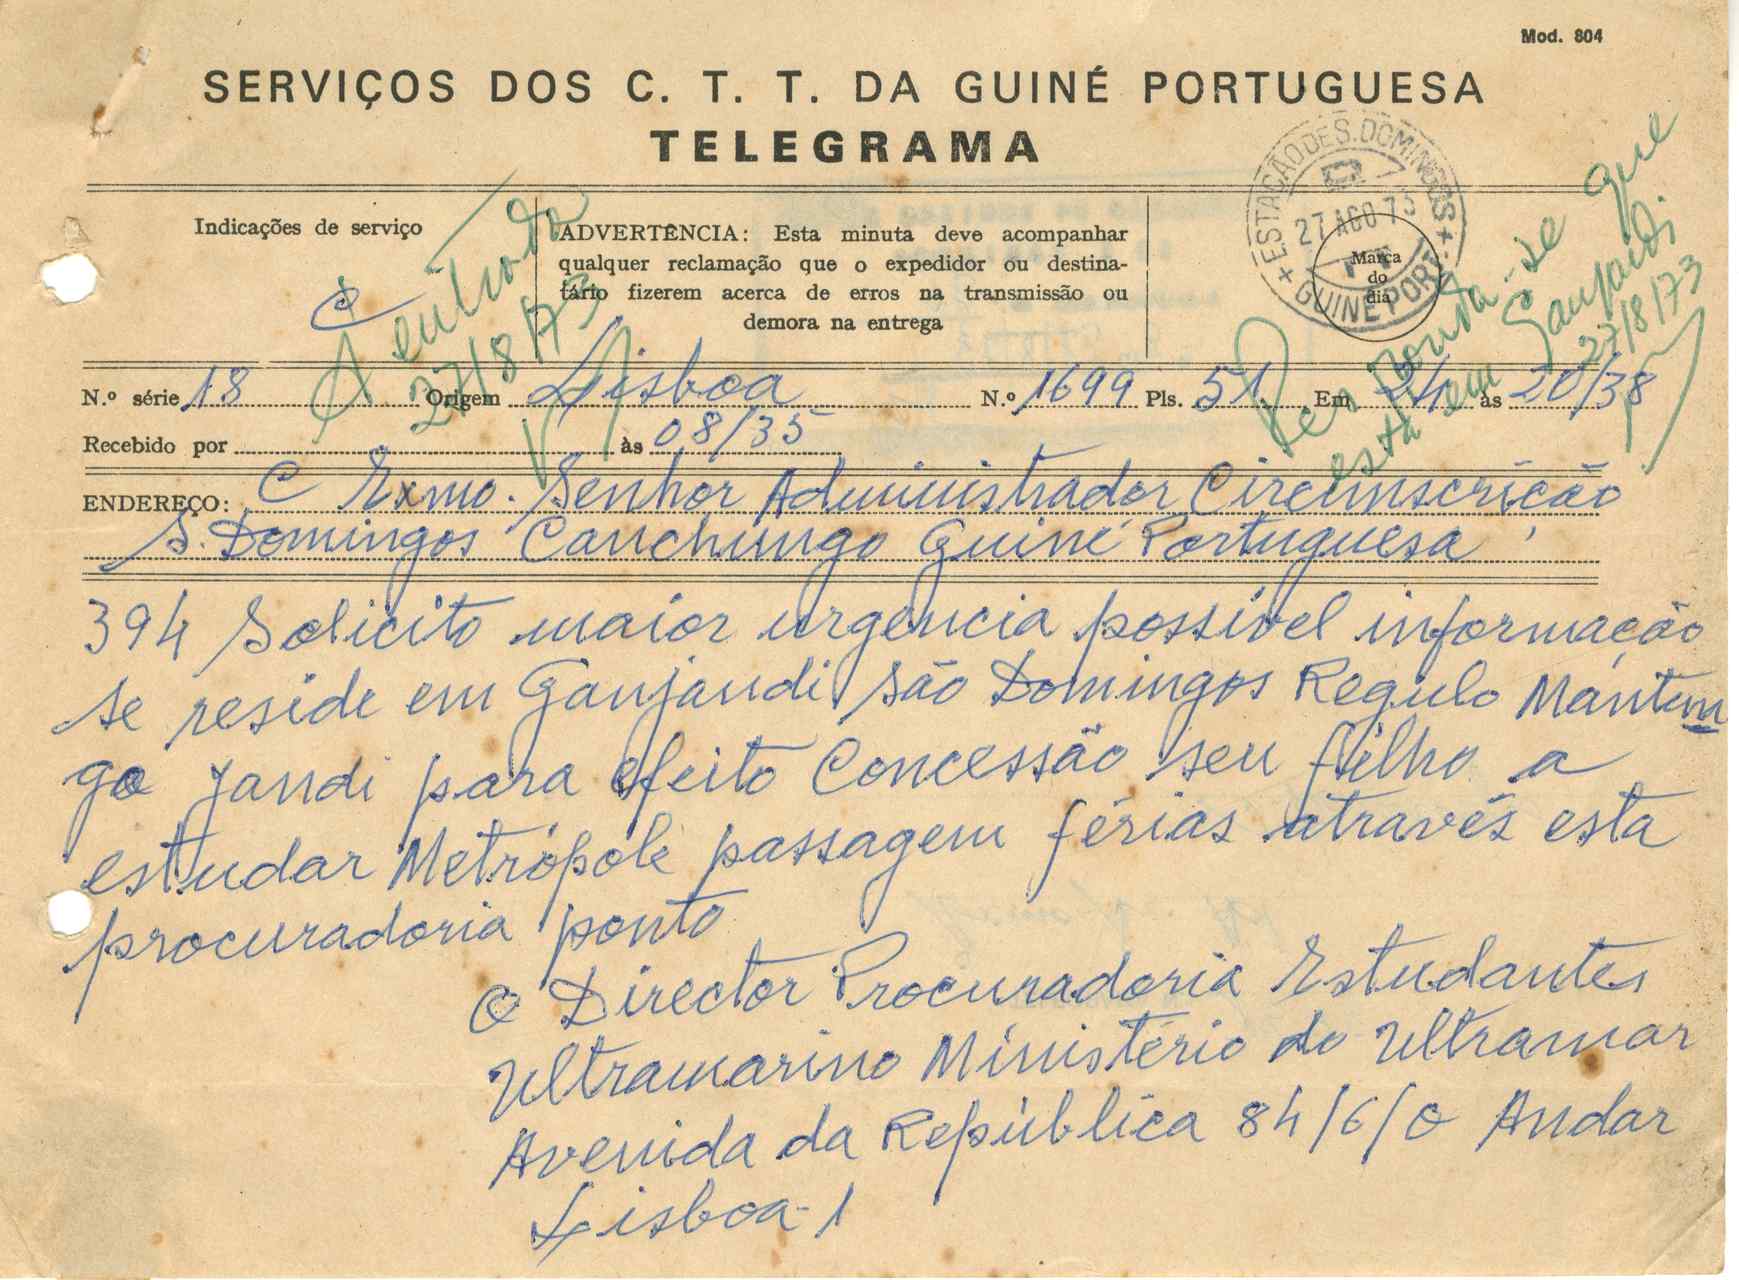 Mod. 804
SERVIÇOS DOS C. T. T. DA GUINÉ PORTUGUESA
TELEGRAMA
Indicações de serviço
ADVERTÊNCIA: Esta minuta deve acompanhar
qualquer reclamação que o expedidor ou destina-
tário fizerem acerca de erros na transmissão ou
demora na entrega
ESTAÇÃO DE S. DOMINGOS
27 AGO 73
GUINÉ PORT.
Marca
do
dia
À entrada
27/8/73
Responda-se que
está em Ganjandi
27/8/73
N.º série 18 Origem Lisboa N.º 1699 Pls. 51 Em 24 às 20/38
Recebido por às 08/35
ENDEREÇO: C Exmo. Senhor Administrador Circunscrição
S. Domingos Canchungo Guiné Portuguesa
394 Solicito maior urgencia possivel informação
se reside em Ganjandi São Domingos Regulo Mantun
go Jandi para efeito Concessão seu filho a
estudar Metrópole passagem férias através esta
procuradoria ponto
O Director Procuradoria Estudantes
Ultramarino Ministério do Ultramar
Avenida da República 84/6/O Andar
Lisboa-1